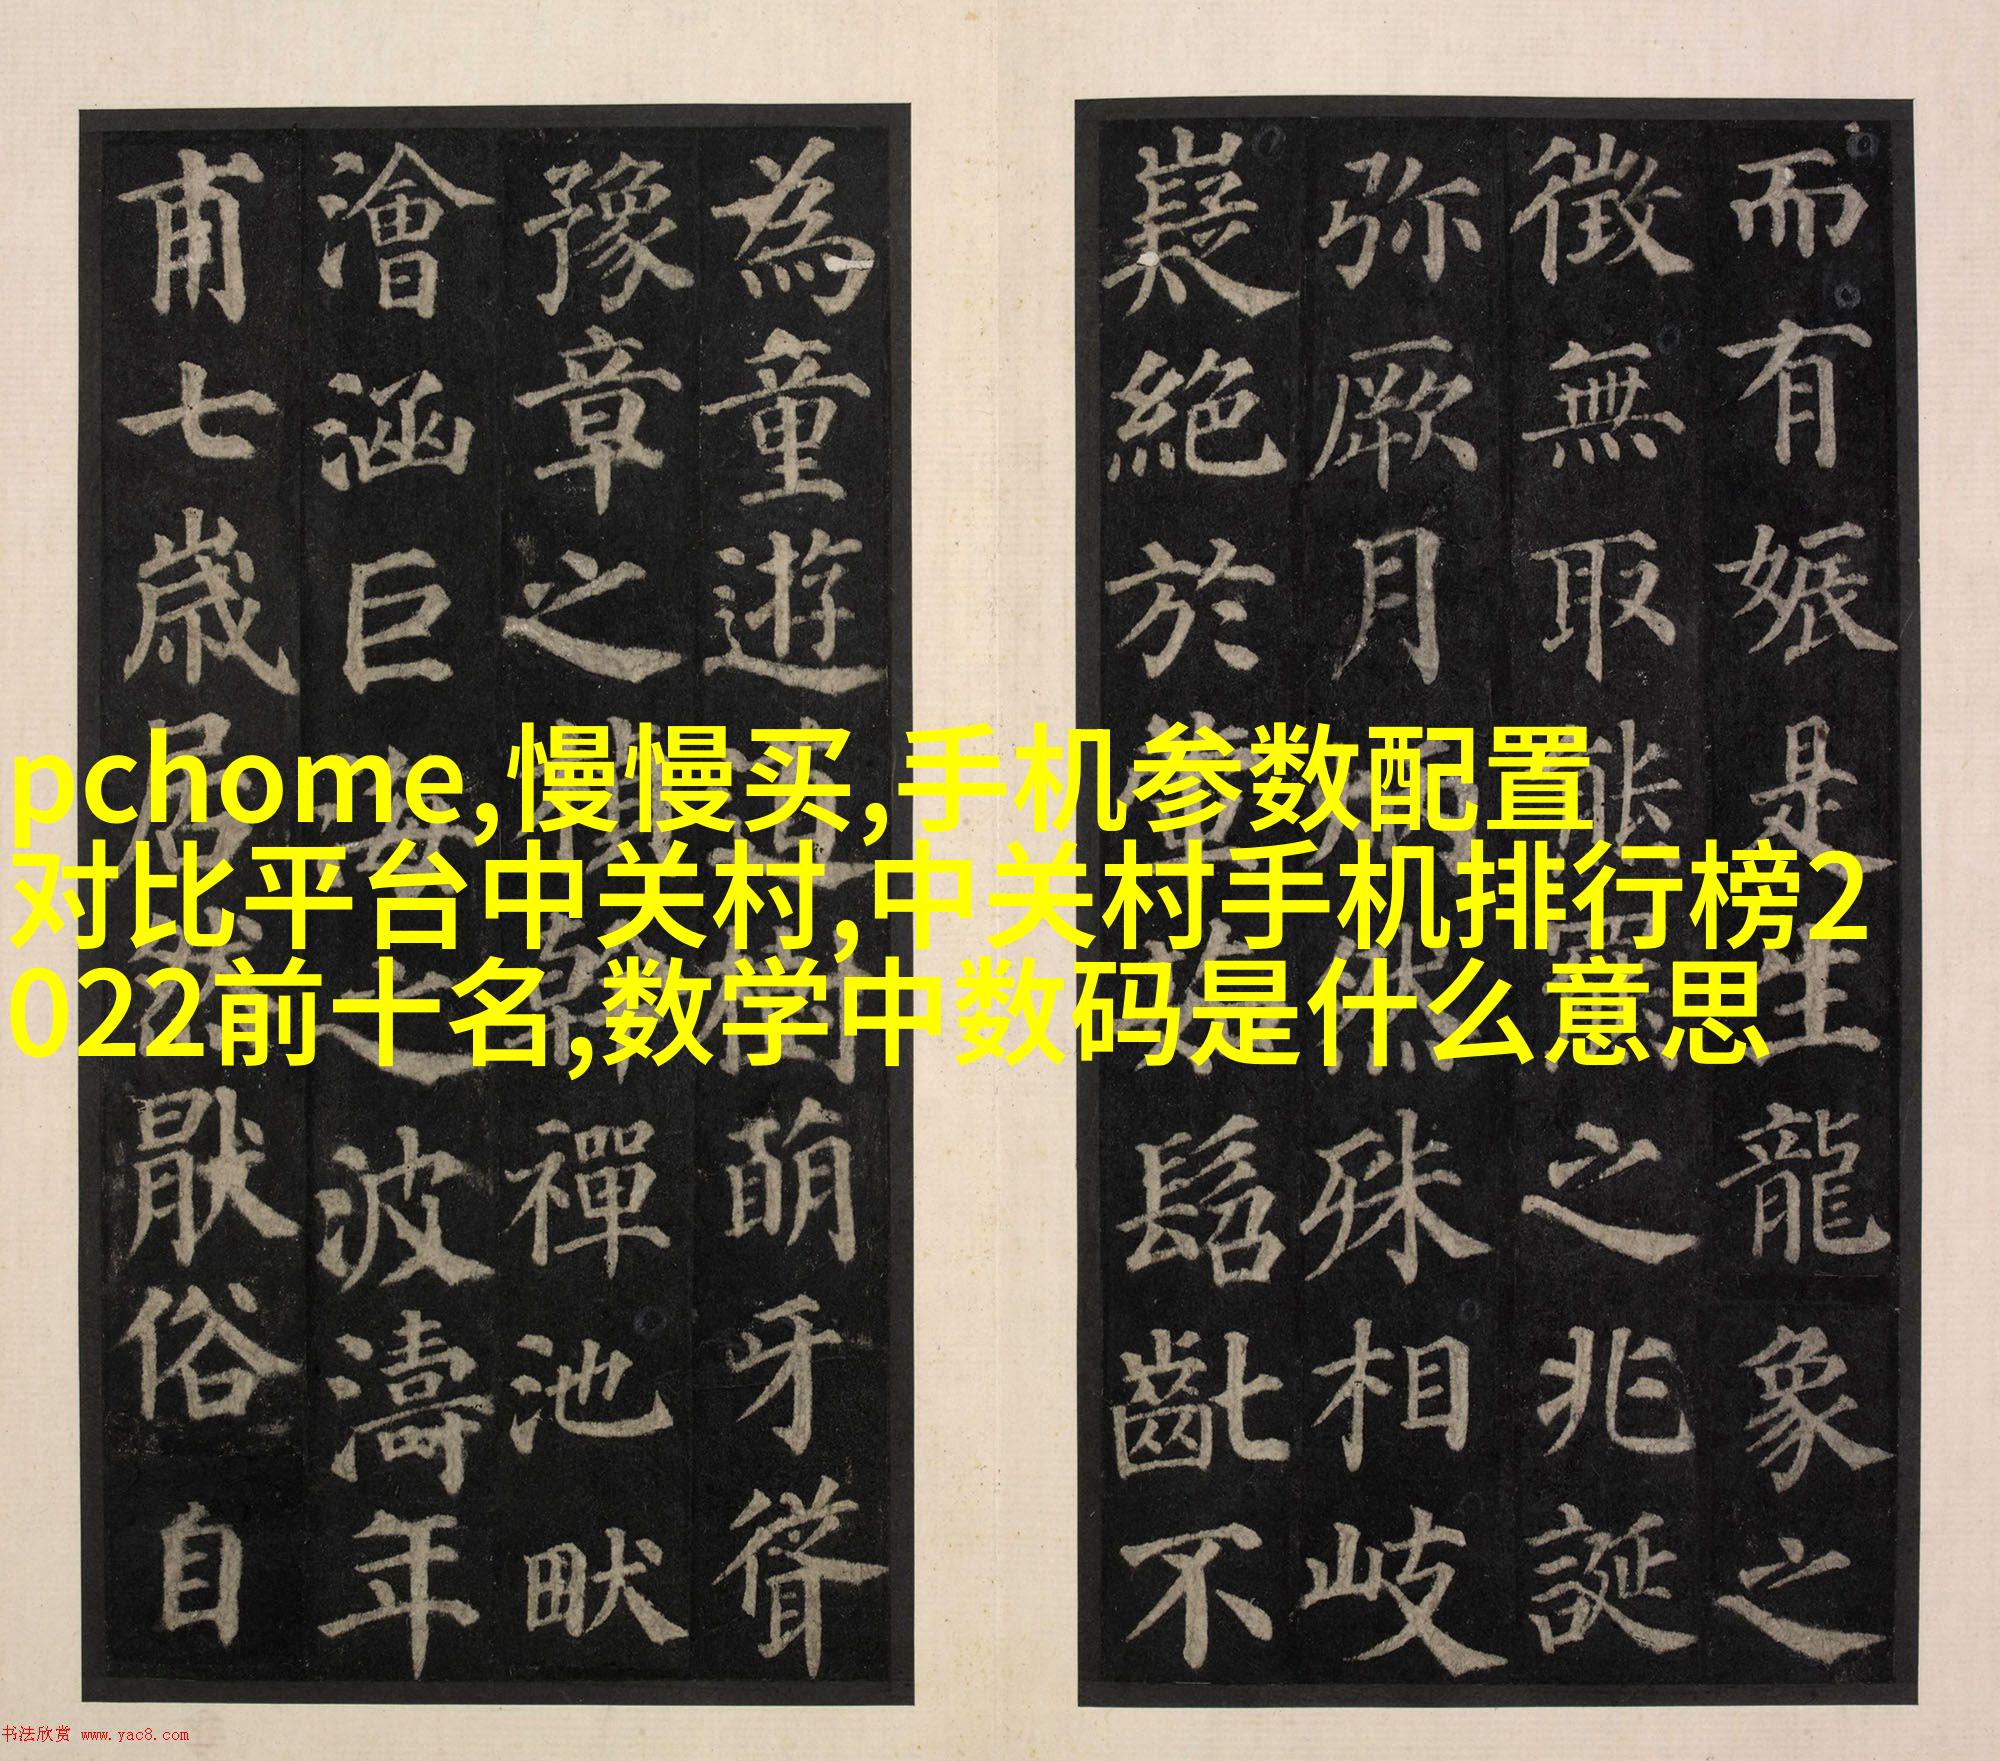 而有娠是生龍象之
徵無取熊羆之兆誕
弥厥月炳然殊相岐
嶷絶於髫齔不
為童遊道樹萌牙聳
豫章之幹禪池畎
澮涵巨海之波濤年
甫七歲居然厭俗自
pchome,慢慢买,手机参数配置
对比平台中关村,中关村手机排行榜2
022前十名,数学中数码是什么意思
书法欣赏 www.yac8.com